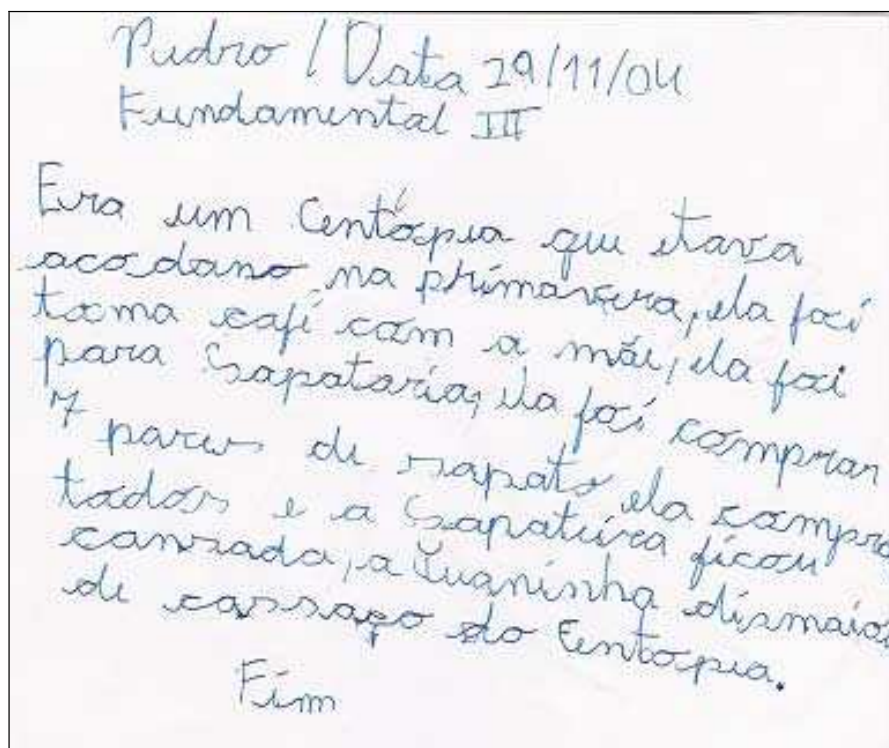 Pedro / Data 29/11/04
Fundamental III
Era um Centópeia que etava
acodano na primavera, ela foi
toma café com a mãe, ela foi
para Sapataria, ela foi comprar
7 pares de sapato ela compro
todos e a Sapateira ficou
cansada, a Juaninha dismaiou
de cassaço do Centopeia.
Fim